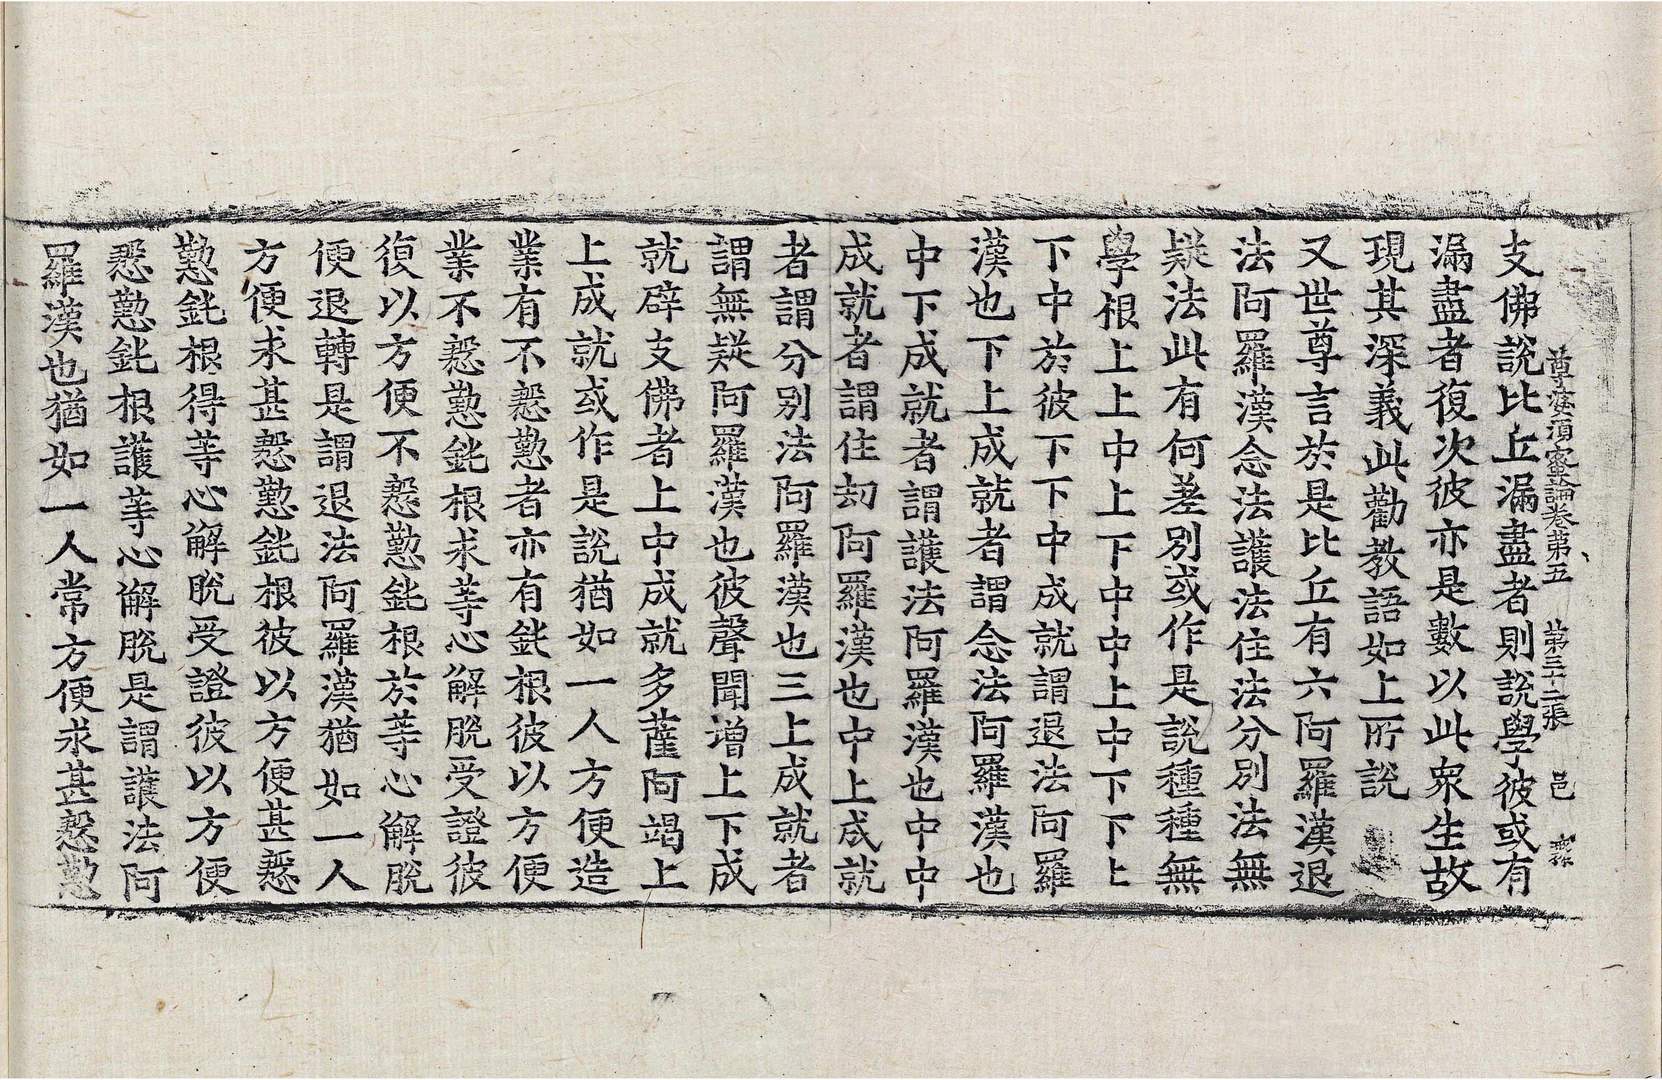 尊婆須蜜論卷第五　第三十二張　邑
支佛說比丘漏盡者則說學彼或有
漏盡者復次彼亦是數以此衆生故
現其深義此勸教語如上所說
又世尊言於是比丘有六阿羅漢退
法阿羅漢念法護法住法分別法無
疑法此有何差別或作是說種種無
學根上上中上下中中上中下下上
下中於彼下下中成就謂退法阿羅
漢也下上成就者謂念法阿羅漢也
中下成就者謂護法阿羅漢也中中
成就者謂住劫阿羅漢也中上成就
者謂分別法阿羅漢也三上成就者
謂無疑阿羅漢也彼聲聞增上下成
就辟支佛者上中成就多薩阿竭上
上成就或作是說猶如一人方便造
業有不慇懃者亦有鈍根彼以方便
業不慇懃鈍根求等心解脫受證彼
復以方便不慇懃鈍根於等心解脫
便退轉是謂退法阿羅漢猶如一人
方便求甚慇懃鈍根彼以方便甚慇
懃鈍根得等心解脫受證彼以方便
慇懃鈍根護等心解脫是謂護法阿
羅漢也猶如一人常方便求甚慇懃